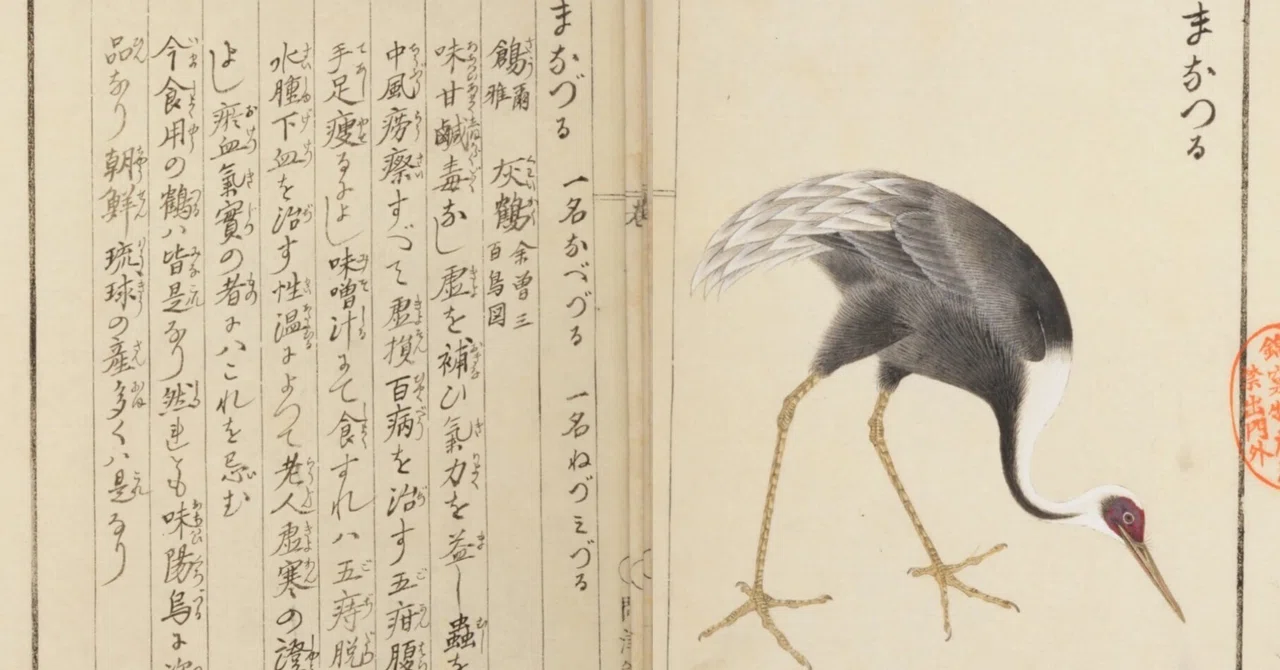 まなつる
まなづる 一名なべづる 一名ねづミづる
鶬 爾雅 灰鶴 余曽三百鳥図
味甘鹹毒なし虚を補ひ氣力を益し蟲を
中風癆瘵すべて虚損百病を治す五疳腹
手足痩るによし味噌汁にて食すれハ五痔脱
水腫下血を治す性温によつて老人虚寒の
よし瘀血氣實の者にハこれを忌む
今食用の鶴ハ皆是なり然れども味陽烏に
品なり朝鮮琉球の産多くハ是なり
禁出門外